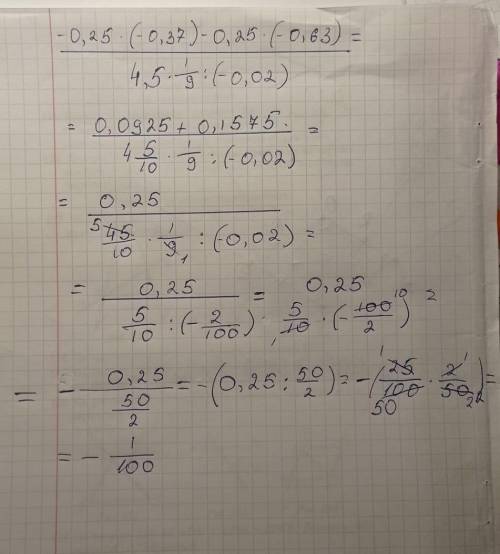 -0,25 · (-0,37) - 0,25 · (-0,63) =
4,5 · 1/9 : (-0,02)
= 0,0925 + 0,1575 · =
4 5/10 · 1/9 : (-0,02)
= 0,25
5 45/10 · 1/9 1 : (-0,02) =
= 0,25 = 0,25 =
5/10 : (-2/100) · 5/10 · (-100/2) 10
= - 0,25 = -(0,25 : 50/2) = -(1 25/100 50 · 2 1/50 2) =
50/2
= - 1/100